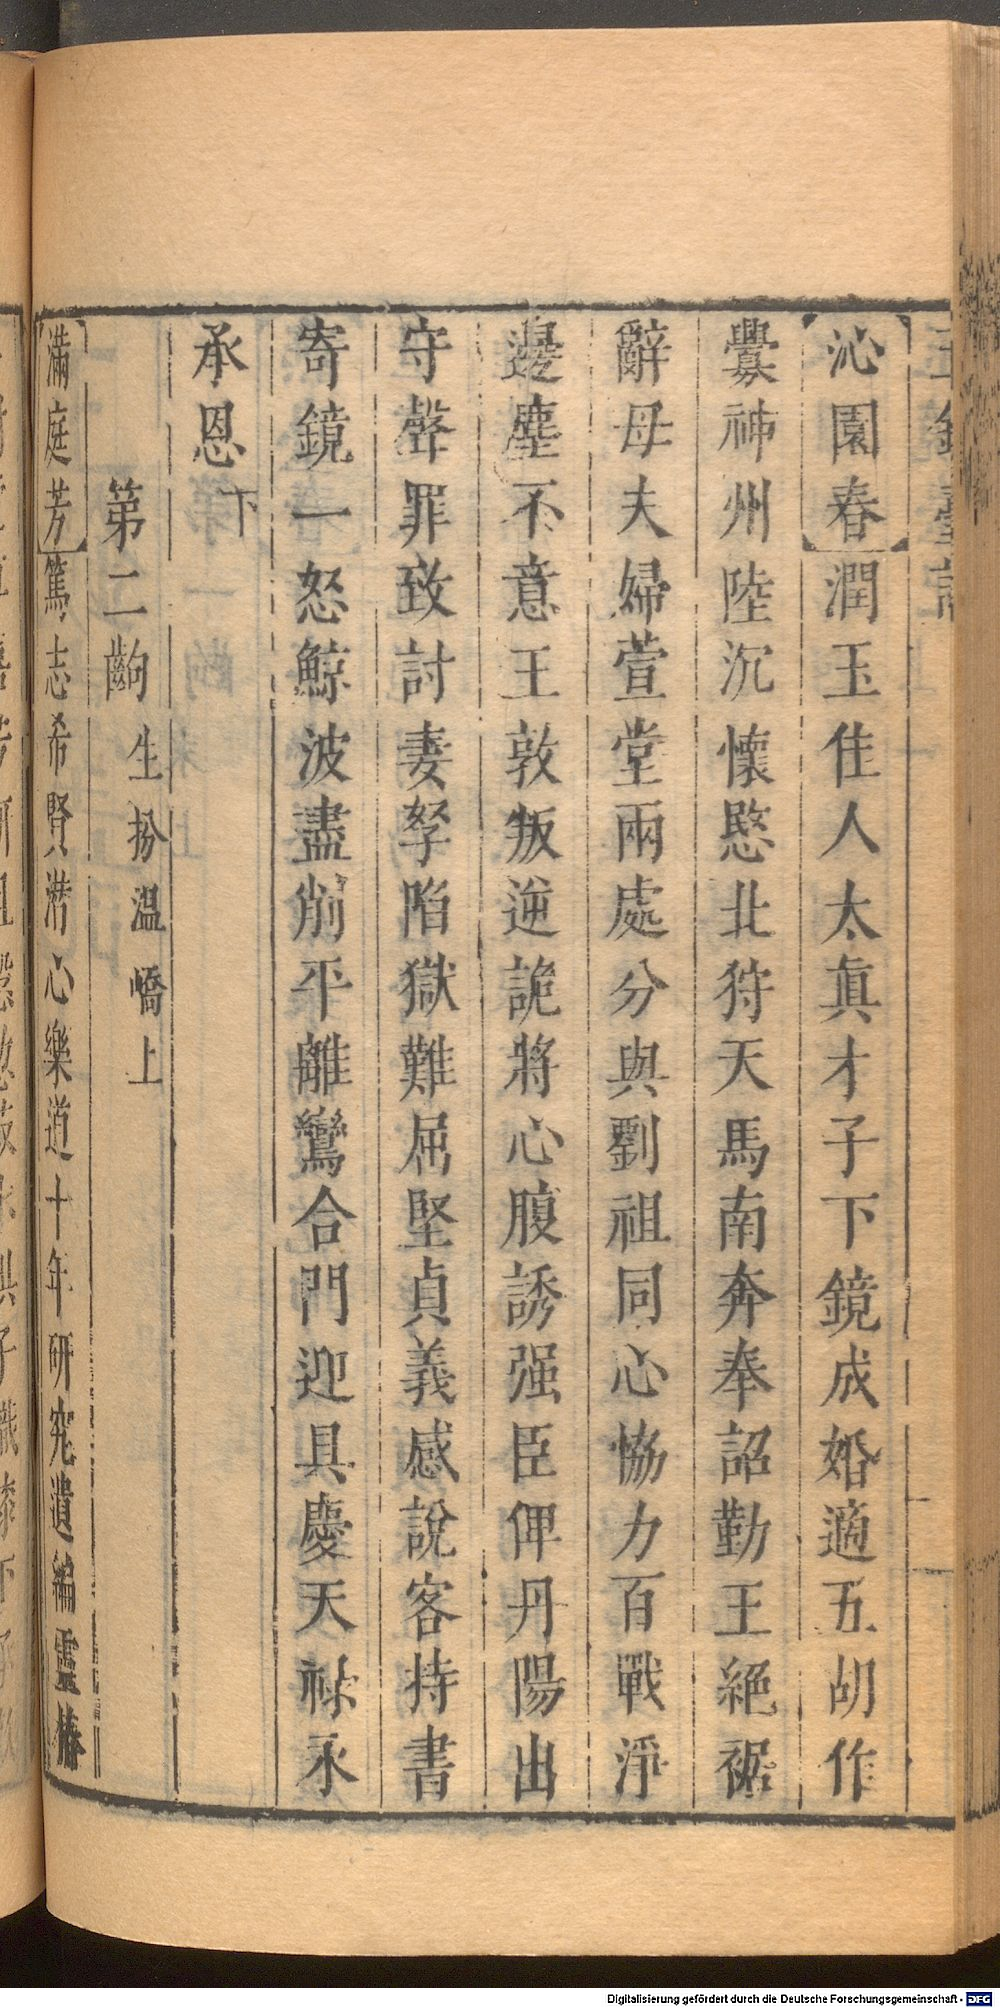 沁園春潤玉佳人太真才子下鏡成婚適五胡作
釁神州陸沉懷愍北狩天馬南奔奉詔勤王絕裾
辭母夫婦萱堂兩處分與劉祖同心恊力百戰淨
邊塵不意王敦叛逆詭將心腹誘强臣俾丹陽出
守聲罪致討妻孥陷獄難屈堅貞義感說客持書
寄鏡一怒鯨波盡削平離鸞合門迎具慶天祉永
承恩下
第二齣生扮溫嶠上
滿庭芳篤志希賢潛心樂道十年研究遺編靈椿
Digitalisierung gefördert durch die Deutsche Forschungsgemeinschaft - DFG